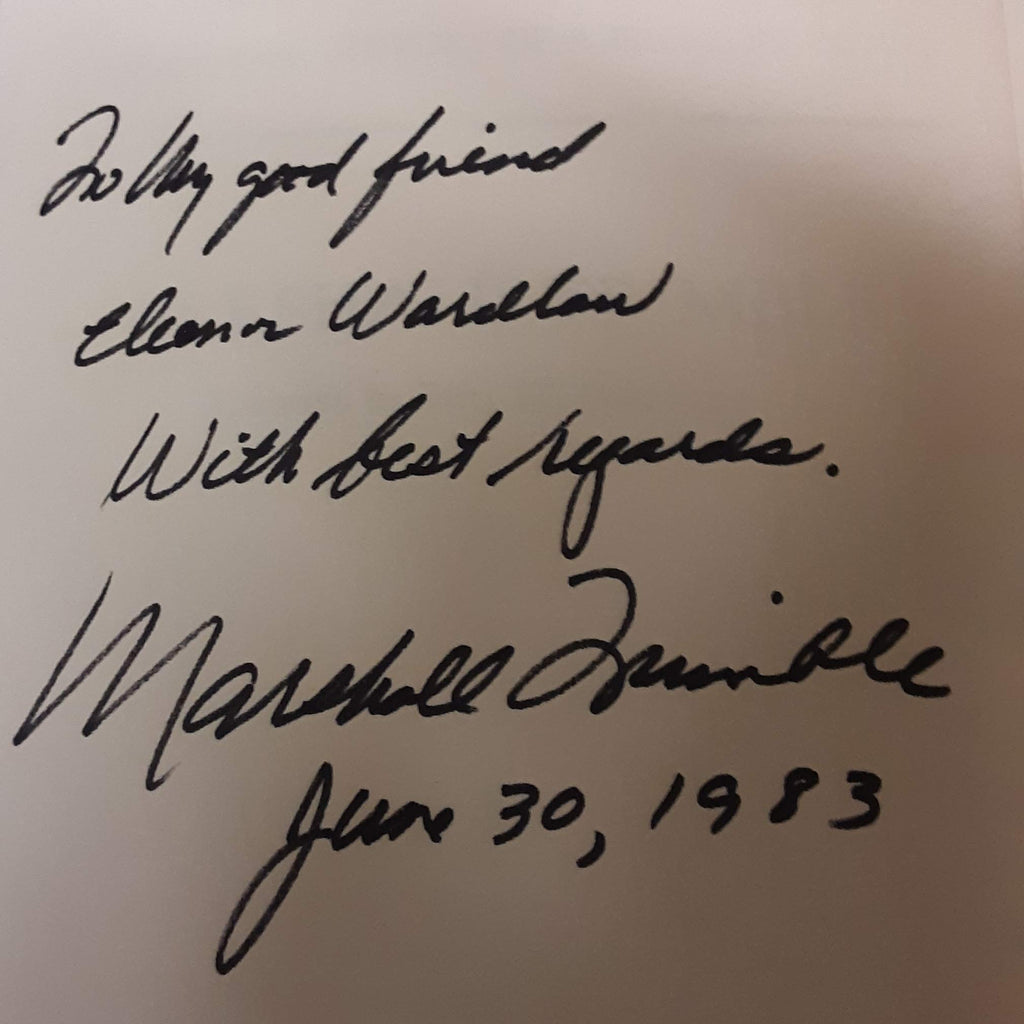 To My good friend
Eleanor Wardlaw
With best regards.
Marshall Trimble
June 30, 1983